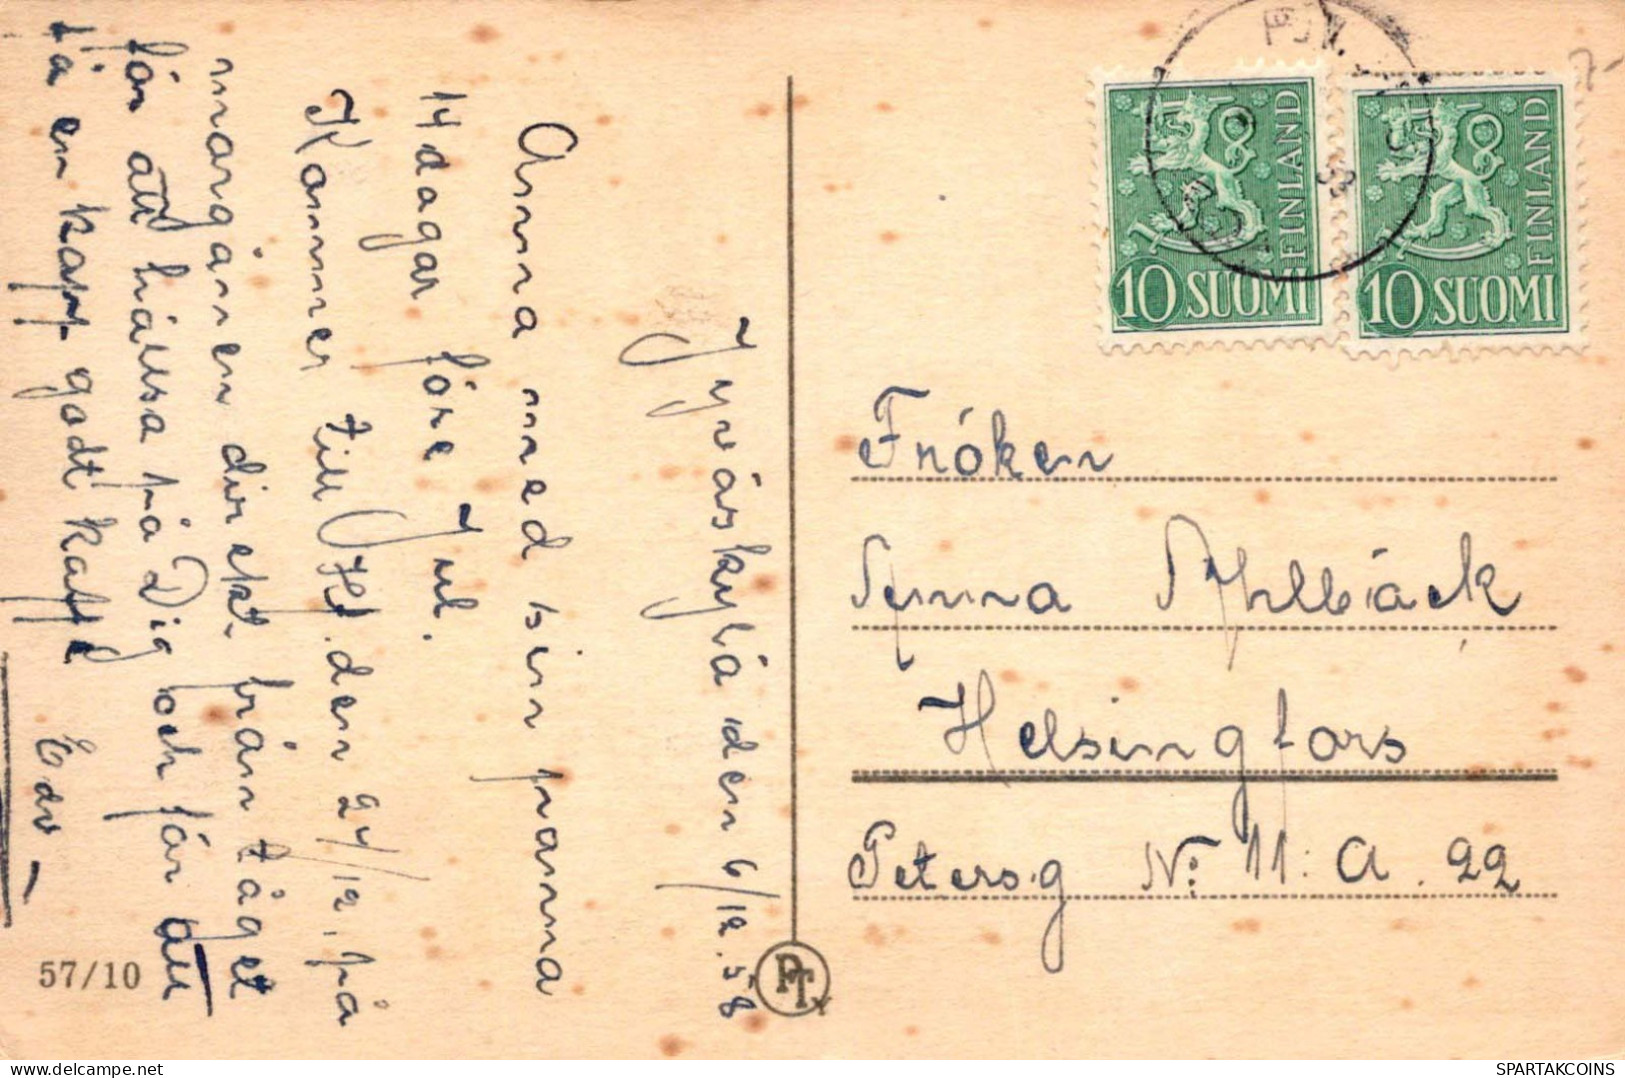 Jyväskylä den 6/12.58
Anna med sin panna
14 dagar före Jul.
Kommer till Hf. den 24/12, på
morgonen direkt från tåget
för att hälsa på Dig och för att
få en kopp godt kaffe
Edv
57/10
PT
FINLAND
10 SUOMI
FINLAND
10 SUOMI
7-
Fröken
Anna Ahlbäck
Helsingfors
Petersg N: 11. A. 22
SPARTAKCOINS